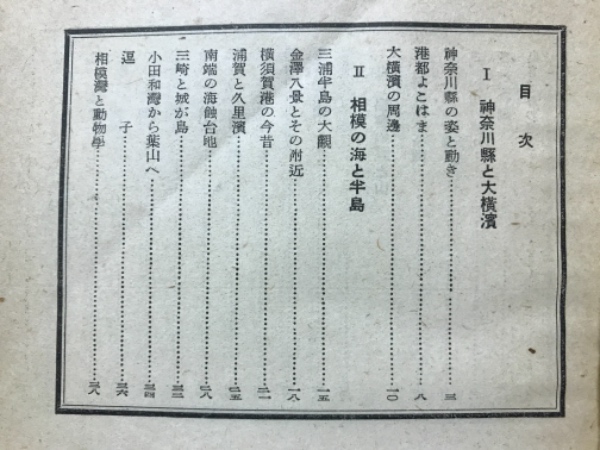 目次
Ⅰ 神奈川縣と大橫濱
神奈川縣の姿と動き………三
港都よこはま………八
大橫濱の周邊………一〇
Ⅱ 相模の海と半島
三浦半島の大觀………一五
金澤八景とその附近………一八
橫須賀港の今昔………二一
浦賀と久里濱………二五
南端の海蝕台地………二八
三崎と城が島………三三
小田和灣から葉山へ………三四
逗子………三六
相模灣と動物學………三八